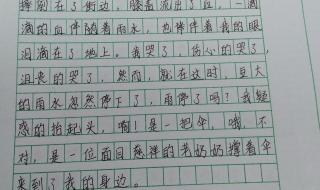 摔倒在了街边，膝盖流出了血，一滴
滴的血伴随着雨水，也伴伴着我的眼
泪滴在了地上。我哭了，伤心的哭了，
沮丧的哭了，然而，就在这时，豆大
的雨水忽然停下了，雨停了吗？我疑
惑的抬起头，啊！是一把伞，哦，不
对，是一位面目慈祥的老奶奶撑着伞
来到了我的身边。